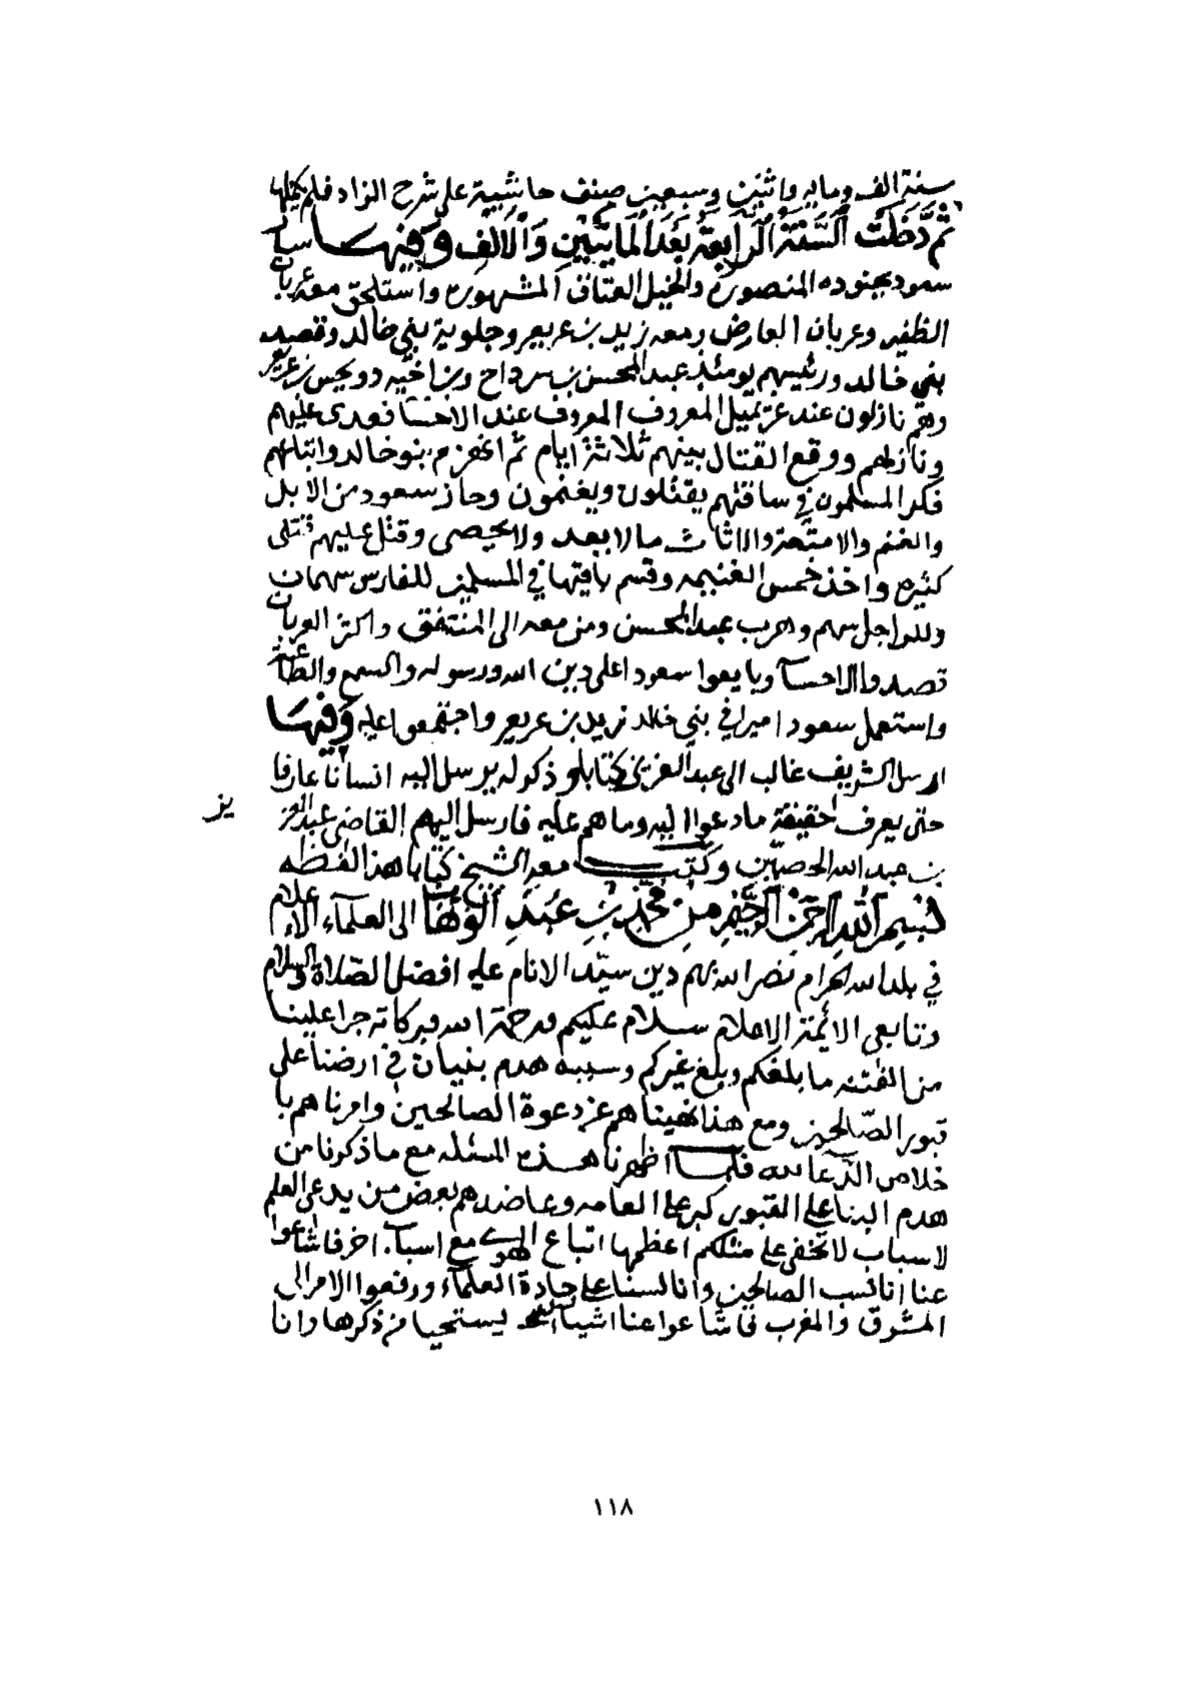 سنة الف ومايه واثنين وسبعين صنف حاشية على شرح الزاد فلم يكملها
ثم دخلت السنة الرابعة بعد المايتين والالف وفيها سار
سعود بجنوده المنصورة والخيل العتاق المشهوره واستلحق معه عربان
الظفير وعربان العارض ومعه زيد بن عريعر وجلوية بني خالد وقصد
بني خالد ورئيسهم يومئذ عبد المحسن بن سرداح وبن اخيه دويحس بن عريعر
وهم نازلون عند غريميل المعروف المعروف عند الاحسا فعدى عليهم
ونازلهم ووقع القتال بينهم ثلاثة ايام ثم انهزم بنو خالد واتباعهم
فكر المسلمون في ساقتهم يقتلون ويغنمون وحاز سعود من الابل
والغنم والامتعة والاثاث ما لا يعد ولا يحصى وقتل عليهم قتلى
كثيره واخذ خمس الغنيمه وقسم باقيها في المسلمين للفارس سهمان
وللراجل سهم وهرب عبد المحسن ومن معه الى المنتفق واكثر العربان
قصدوا الاحسا وبايعوا سعودا على دين الله ورسوله والسمع والطاعة
واستعمل سعود اميرا في بني خالد زيد بن عريعر واجتمعوا عليه وفيها
ارسل الشريف غالب الى عبد العزيز كتابا وذكر له يرسل اليه انسانا عارفا
حتى يعرف حقيقة ما دعوا اليه وما هم عليه فارسل اليهم القاضي عبد العز
يز
بن عبد الله الحصين وكتب معه الشيخ كتابا هذا لفظه
بسم الله الرحمن الرحيم من محمد بن عبد الوهاب الى العلماء الاعلام
في بلد الله الحرام نصر الله بهم دين سيد الانام عليه افضل الصلاة والسلام
وتابعي الائمة الاعلام سلام عليكم ورحمة الله وبركاته جرا علينا
من الفتنه ما بلغكم وبلغ غيركم وسببه هدم بنيان في ارضنا على
قبور الصالحين ومع هذا نهيناهم عن دعوة الصالحين وامرناهم با
خلاص الدعا لله فلما اظهرنا هذه المسئله مع ما ذكرنا من
هدم البنا على القبور كبر على العامه وعاضدهم بعض من يدعي العلم
لاسباب لا تخفى على مثلكم اعظمها اتباع الهوى مع اسباب اخر فاشاعوا
عنا انا نسب الصالحين وانا لسنا على جادة العلماء ورفعوا الامر الى
المشرق والمغرب فاشاعوا عنا اشياء يستحيا من ذكرها وانا
١١٨